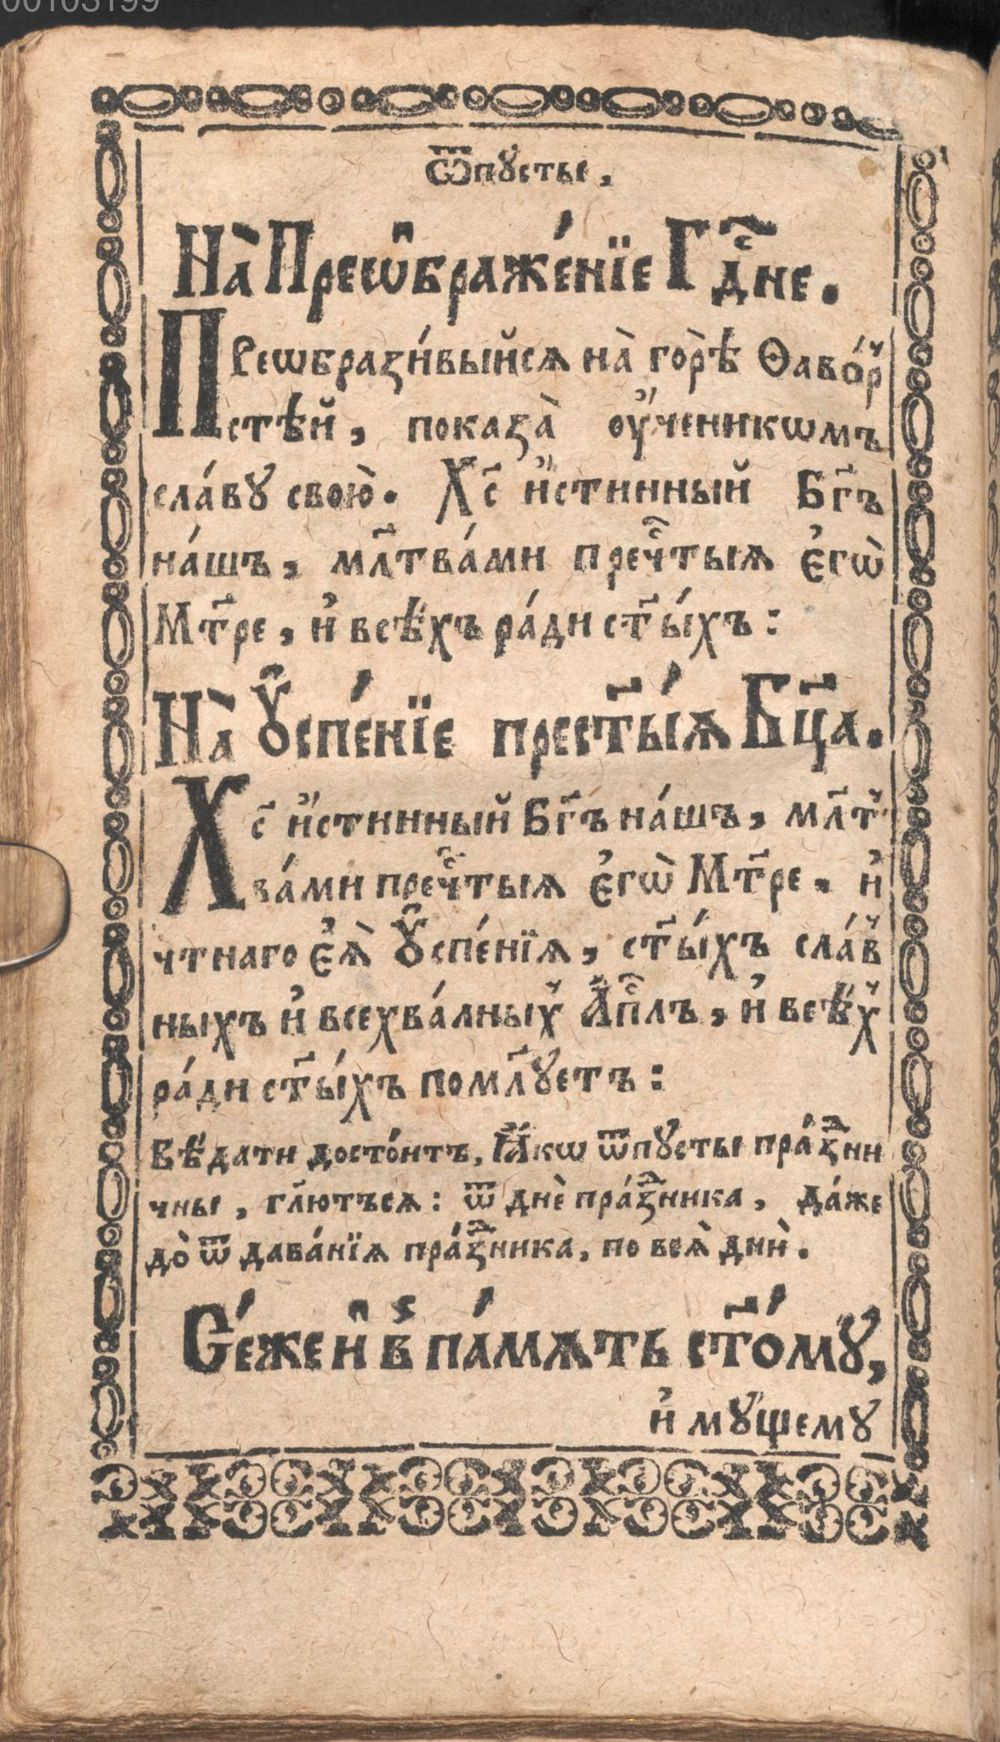 00103199
Ѿпꙋстье,
На̀ Преѡ҆браже́нїе Гдⷭ҇не.
Преѡбрази́выйсѧ на̀ го́рѣ Ѳаво́рⸯ
стѣй, показа̀ оу҆ченикѡмъ
сла́вꙋ свою̀. Хс҃ и҆́стинный Бг҃ъ
на́шъ, мл҃тва́ми преч҃тыѧ є҆гѡ̀
Мт҃ре, и҆ всѣ́хъ ра́ди ст҃ы́хъ:
На̀ Ꙋ҆спе́нїе прест҃ы́ѧ Бц҃а.
Хс҃ и҆́стинный Бг҃ъ на́шъ, мл҃тⸯ
ва́ми преч҃тыѧ є҆гѡ̀ Мт҃ре, и҆
чтнаго є҆ѧ̀ Ꙋ҆спе́нїѧ, ст҃ы́хъ сла́вⸯ
ныхъ и҆ всехва́лныхⸯ А҆пⷭ҇лъ, и҆ всѣ́хⸯ
ра́ди ст҃ы́хъ помл҃ꙋетъ:
Вѣ́дати досто́итъ, Ꙗ҆́кѡ ѿпꙋстье пра́зⷣни
чные, гл҃ютъсѧ: ѿ днѐ пра́зⷣника, да́же
до̀ ѿдава́нїѧ пра́зⷣника, по всѧ̀ днѝ.
Се́же и҆ в̾ па́мѧть ст҃о́мꙋ,
и҆мꙋщемꙋ